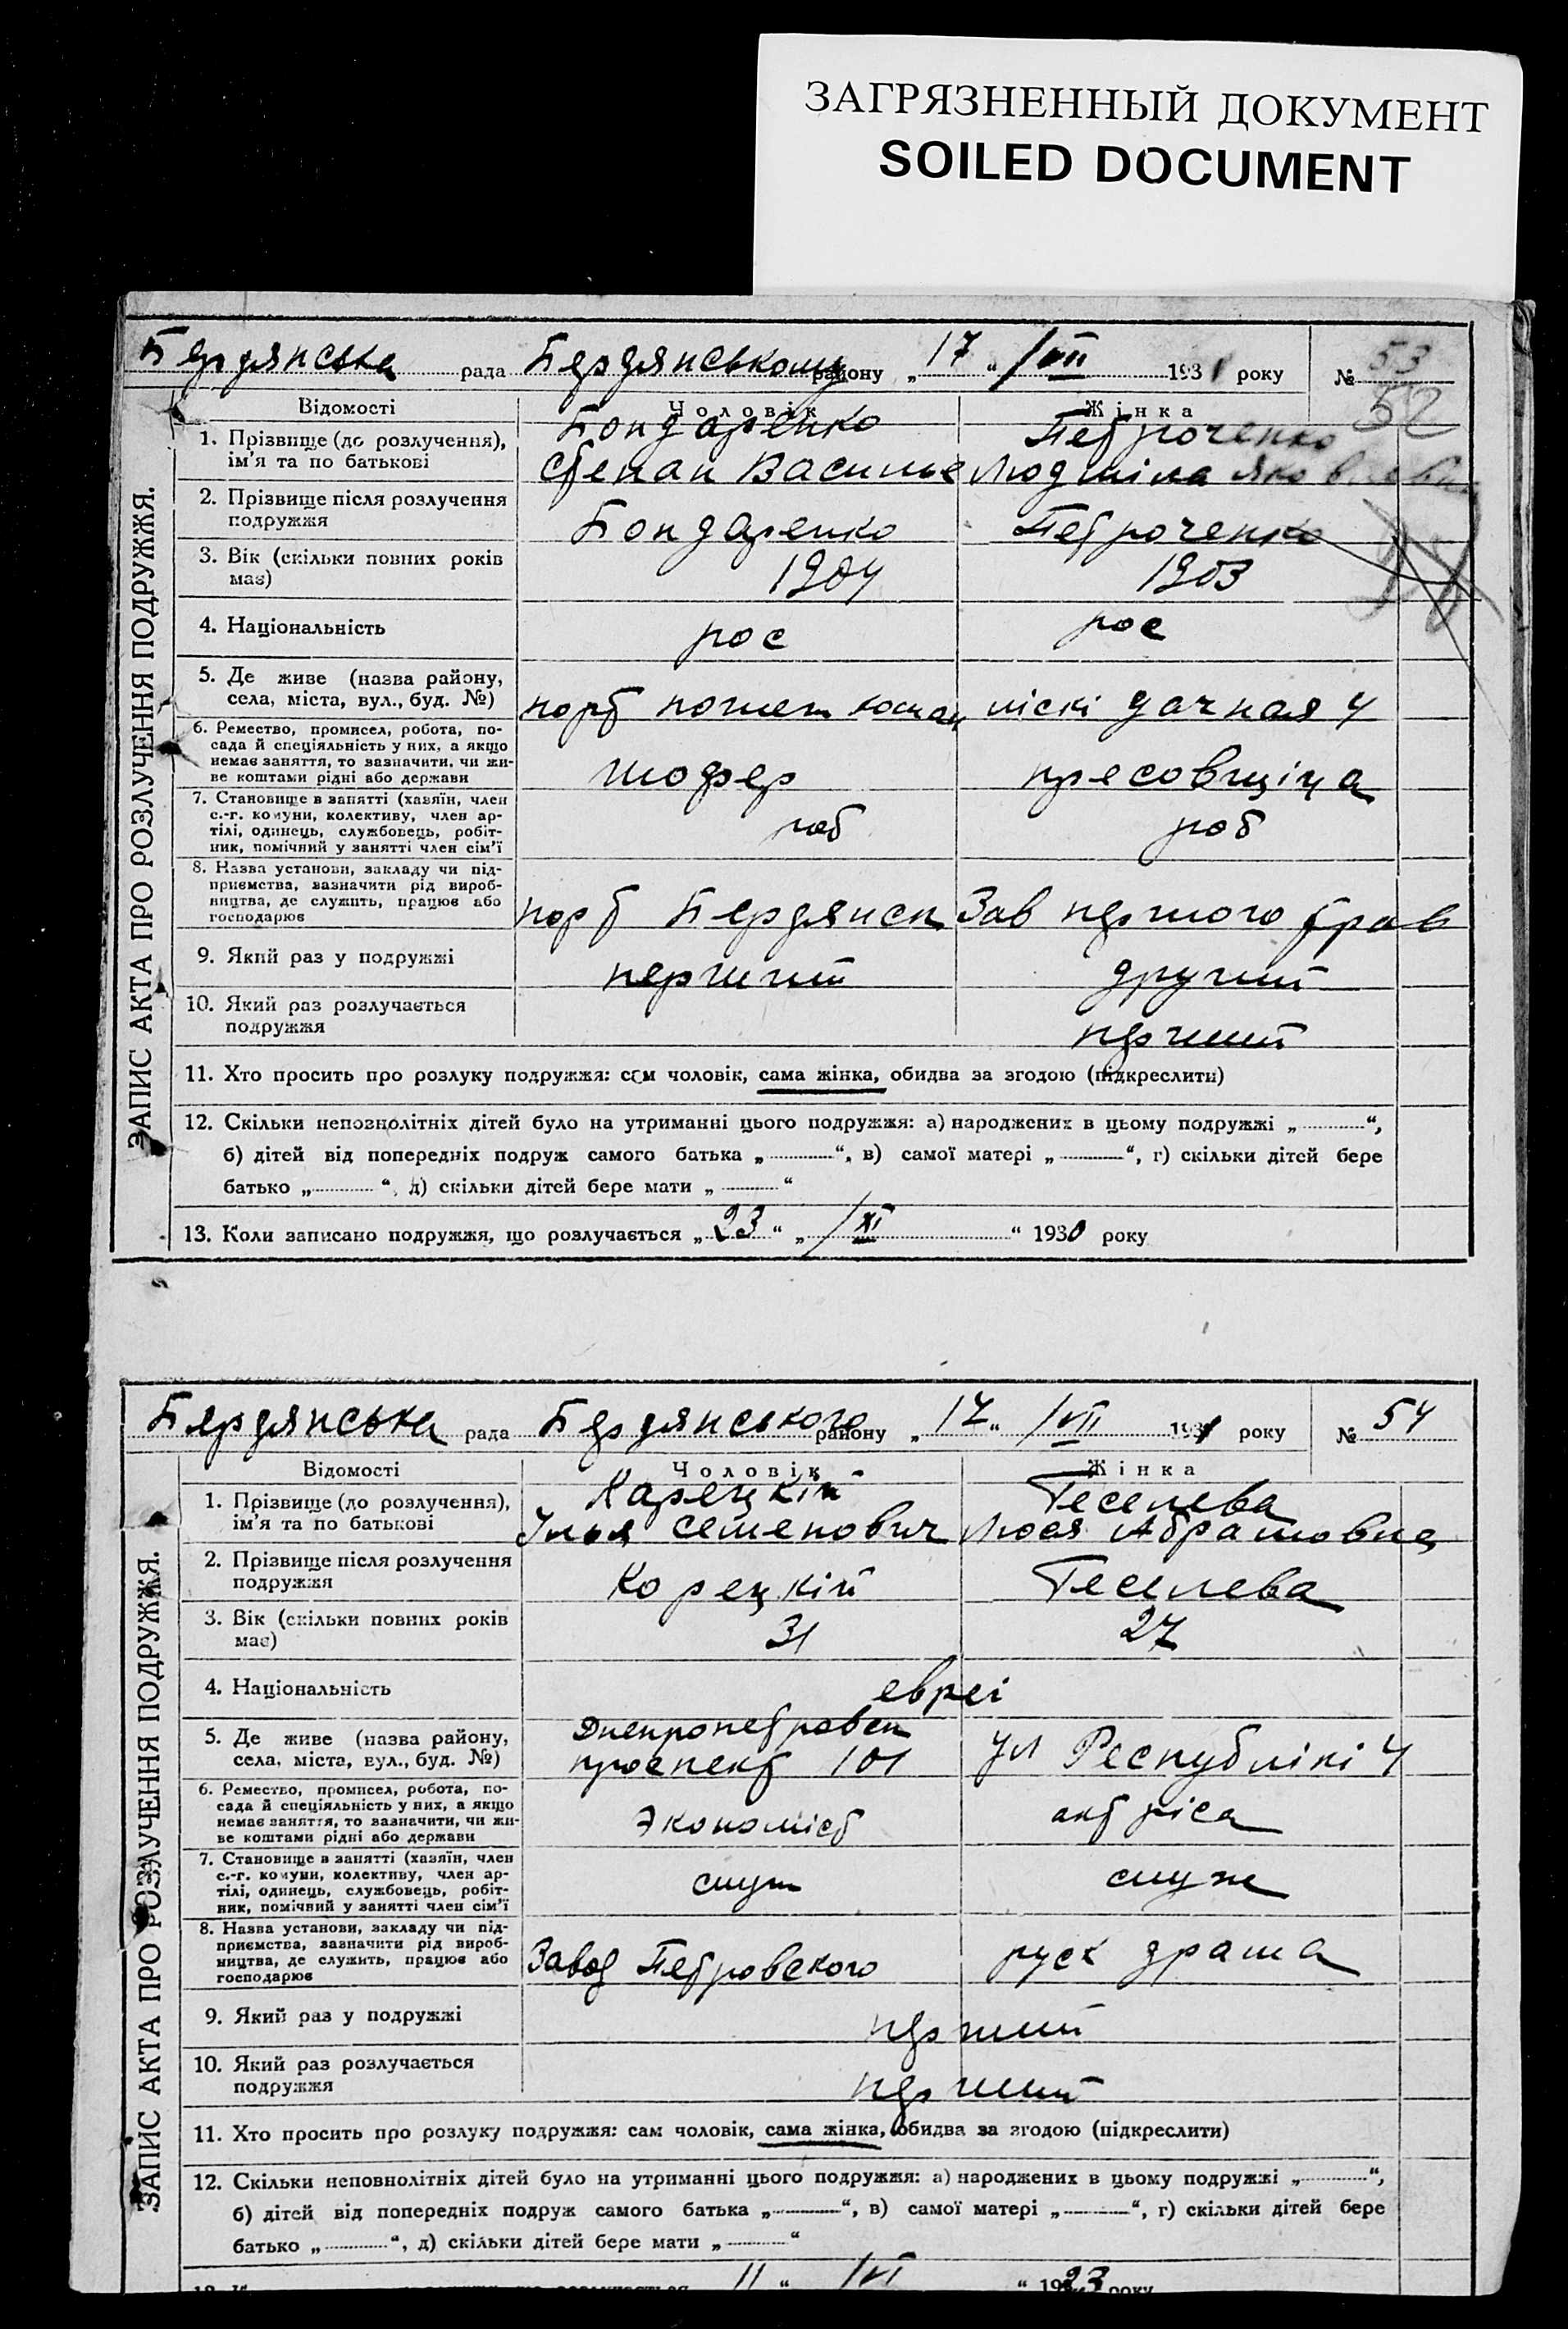 ЗАГРЯЗНЕННЫЙ ДОКУМЕНТ
SOILED DOCUMENT
Бердянська рада Бердянському району „ 17 “ /VII 1931 року № 53
52
Відомості Чоловік Жінка
1. Прізвище (до розлучення), ім'я та по батькові
Бондаренко Петроченко
Степан Василье Людміла Яковлевна
2. Прізвище після розлучення подружжя
Бондаренко Петроченко
3. Вік (скільки повних років має)
1904 1903
4. Національність
рос рос
5. Де живе (назва району, села, міста, вул., буд. №)
порт піскі дачная 4
6. Ремество, промисел, робота, по-
сада й спеціяльність у них, а якщо
немає заняття, то зазначити, чи жи-
ве коштами рідні або держави
шофер пресовщіца
7. Становище в занятті (хазяїн, член
с.-г. комуни, колективу, член ар-
тілі, одинець, службовець, робіт-
ник, помічний у занятті член сім'ї
роб роб
8. Назва установи, закладу чи під-
приємства, зазначити рід вироб-
ництва, де служить, працює або
господарює
порт Бердянск Зав першого трав
9. Який раз у подружжі
перший другий
10. Який раз розлучається
подружжя
перший
11. Хто просить про розлуку подружжя: сам чоловік, сама жінка, обидва за згодою (підкреслити)
12. Скільки неповнолітніх дітей було на утриманні цього подружжя: а) народжених в цьому подружжі „ “,
б) дітей від попередніх подруж самого батька „ “, в) самої матері „ “, г) скільки дітей бере
батько „ “, д) скільки дітей бере мати „ “
13. Коли записано подружжя, що розлучається „ 23 “ „ /XI “ 1930 року
ЗАПИС АКТА ПРО РОЗЛУЧЕННЯ ПОДРУЖЖЯ.
Бердянська рада Бердянського району „ 17 “ /VII 1931 року № 54
Відомості Чоловік Жінка
1. Прізвище (до розлучення), ім'я та по батькові
Карецкій Геселева
Ілья Семенович Люся Абрамовна
2. Прізвище після розлучення
подружжя
Корецкій Геселева
3. Вік (скільки повних років
має)
31 27
4. Національність
евреі
5. Де живе (назва району,
села, міста, вул., буд. №)
Днепропетровск
проспект 101 ул Республікі 4
6. Ремество, промисел, робота, по-
сада й спеціяльність у них, а якщо
немає заняття, то зазначити, чи жи-
ве коштами рідні або держави
Экономіст актріса
7. Становище в занятті (хазяїн, член
с.-г. комуни, колективу, член ар-
тілі, одинець, службовець, робіт-
ник, помічний у занятті член сім'ї
служ служ
8. Назва установи, закладу чи під-
приємства, зазначити рід вироб-
ництва, де служить, працює або
господарює
Завод Петровского руск драма
9. Який раз у подружжі
перший
10. Який раз розлучається
подружжя
перший
11. Хто просить про розлуку подружжя: сам чоловік, сама жінка, обидва за згодою (підкреслити)
12. Скільки неповнолітніх дітей було на утриманні цього подружжя: а) народжених в цьому подружжі „ “,
б) дітей від попередніх подруж самого батька „ “, в) самої матері „ “, г) скільки дітей бере
батько „ “, д) скільки дітей бере мати „ “
11 “ /VI “ 1923 року
ЗАПИС АКТА ПРО РОЗЛУЧЕННЯ ПОДРУЖЖЯ.